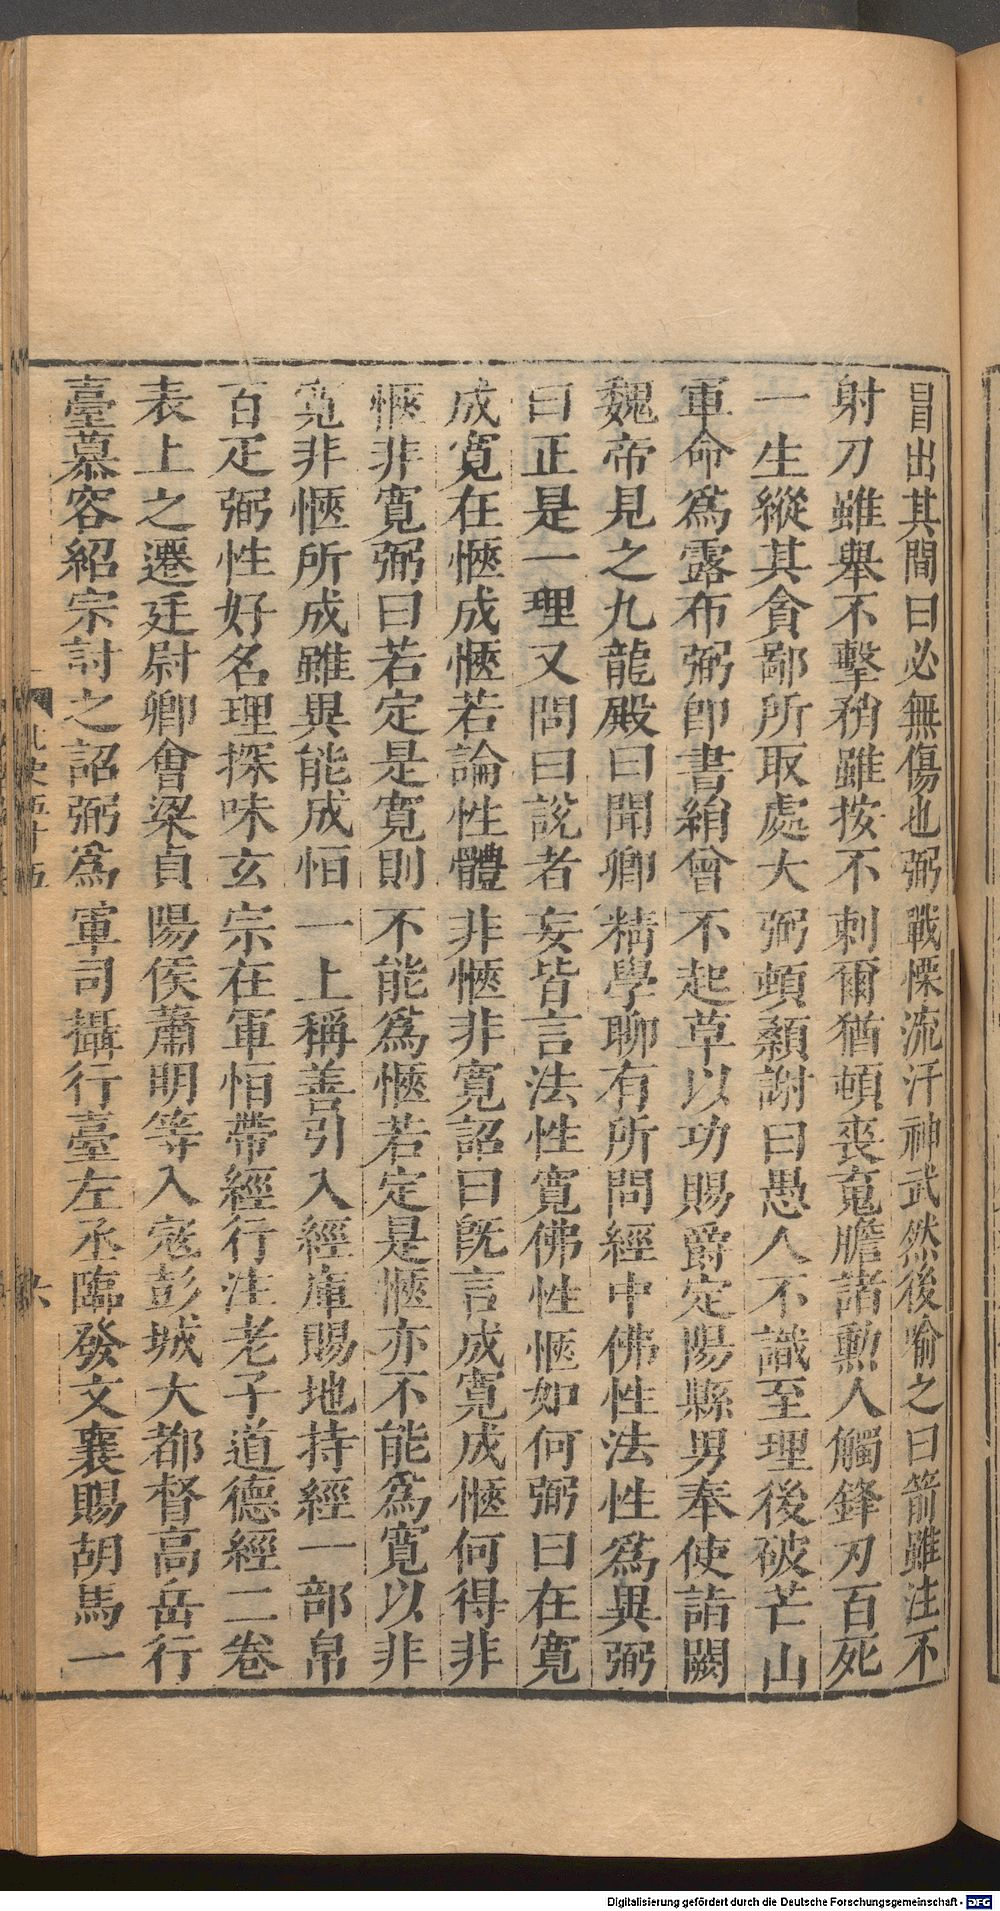 冒出其間曰必無傷也弼戰慄流汗神武然後喻之曰箭雖注不
射刀雖舉不擊矟雖按不刺爾猶頓喪䰟膽諸勲人觸鋒刃百死
一生縱其貪鄙所取處大弼頓顙謝曰愚人不識至理後破芒山
軍命爲露布弼卽書絹曾不起草以功賜爵定陽縣男奉使詣闕
魏帝見之九龍殿曰聞卿精學聊有所問經中佛性法性爲異弼
曰正是一理又問曰說者妄皆言法性寛佛性愜如何弼曰在寛
成寛在愜成愜若論性體非愜非寛詔曰旣言成寛成愜何得非
愜非寛弼曰若定是寛則不能爲愜若定是愜亦不能爲寛以非
寛非愜所成雖異能成恒一上稱善引入經庫賜地持經一部帛
百疋弼性好名理探味玄宗在軍恒帶經行注老子道德經二卷
表上之遷廷尉卿會梁貞陽侯蕭明等入宼彭城大都督高岳行
臺慕容紹宗討之詔弼爲軍司攝行臺左丞臨發文襄賜胡馬一
北史五十五
六
Digitalisierung gefördert durch die Deutsche Forschungsgemeinschaft - DFG